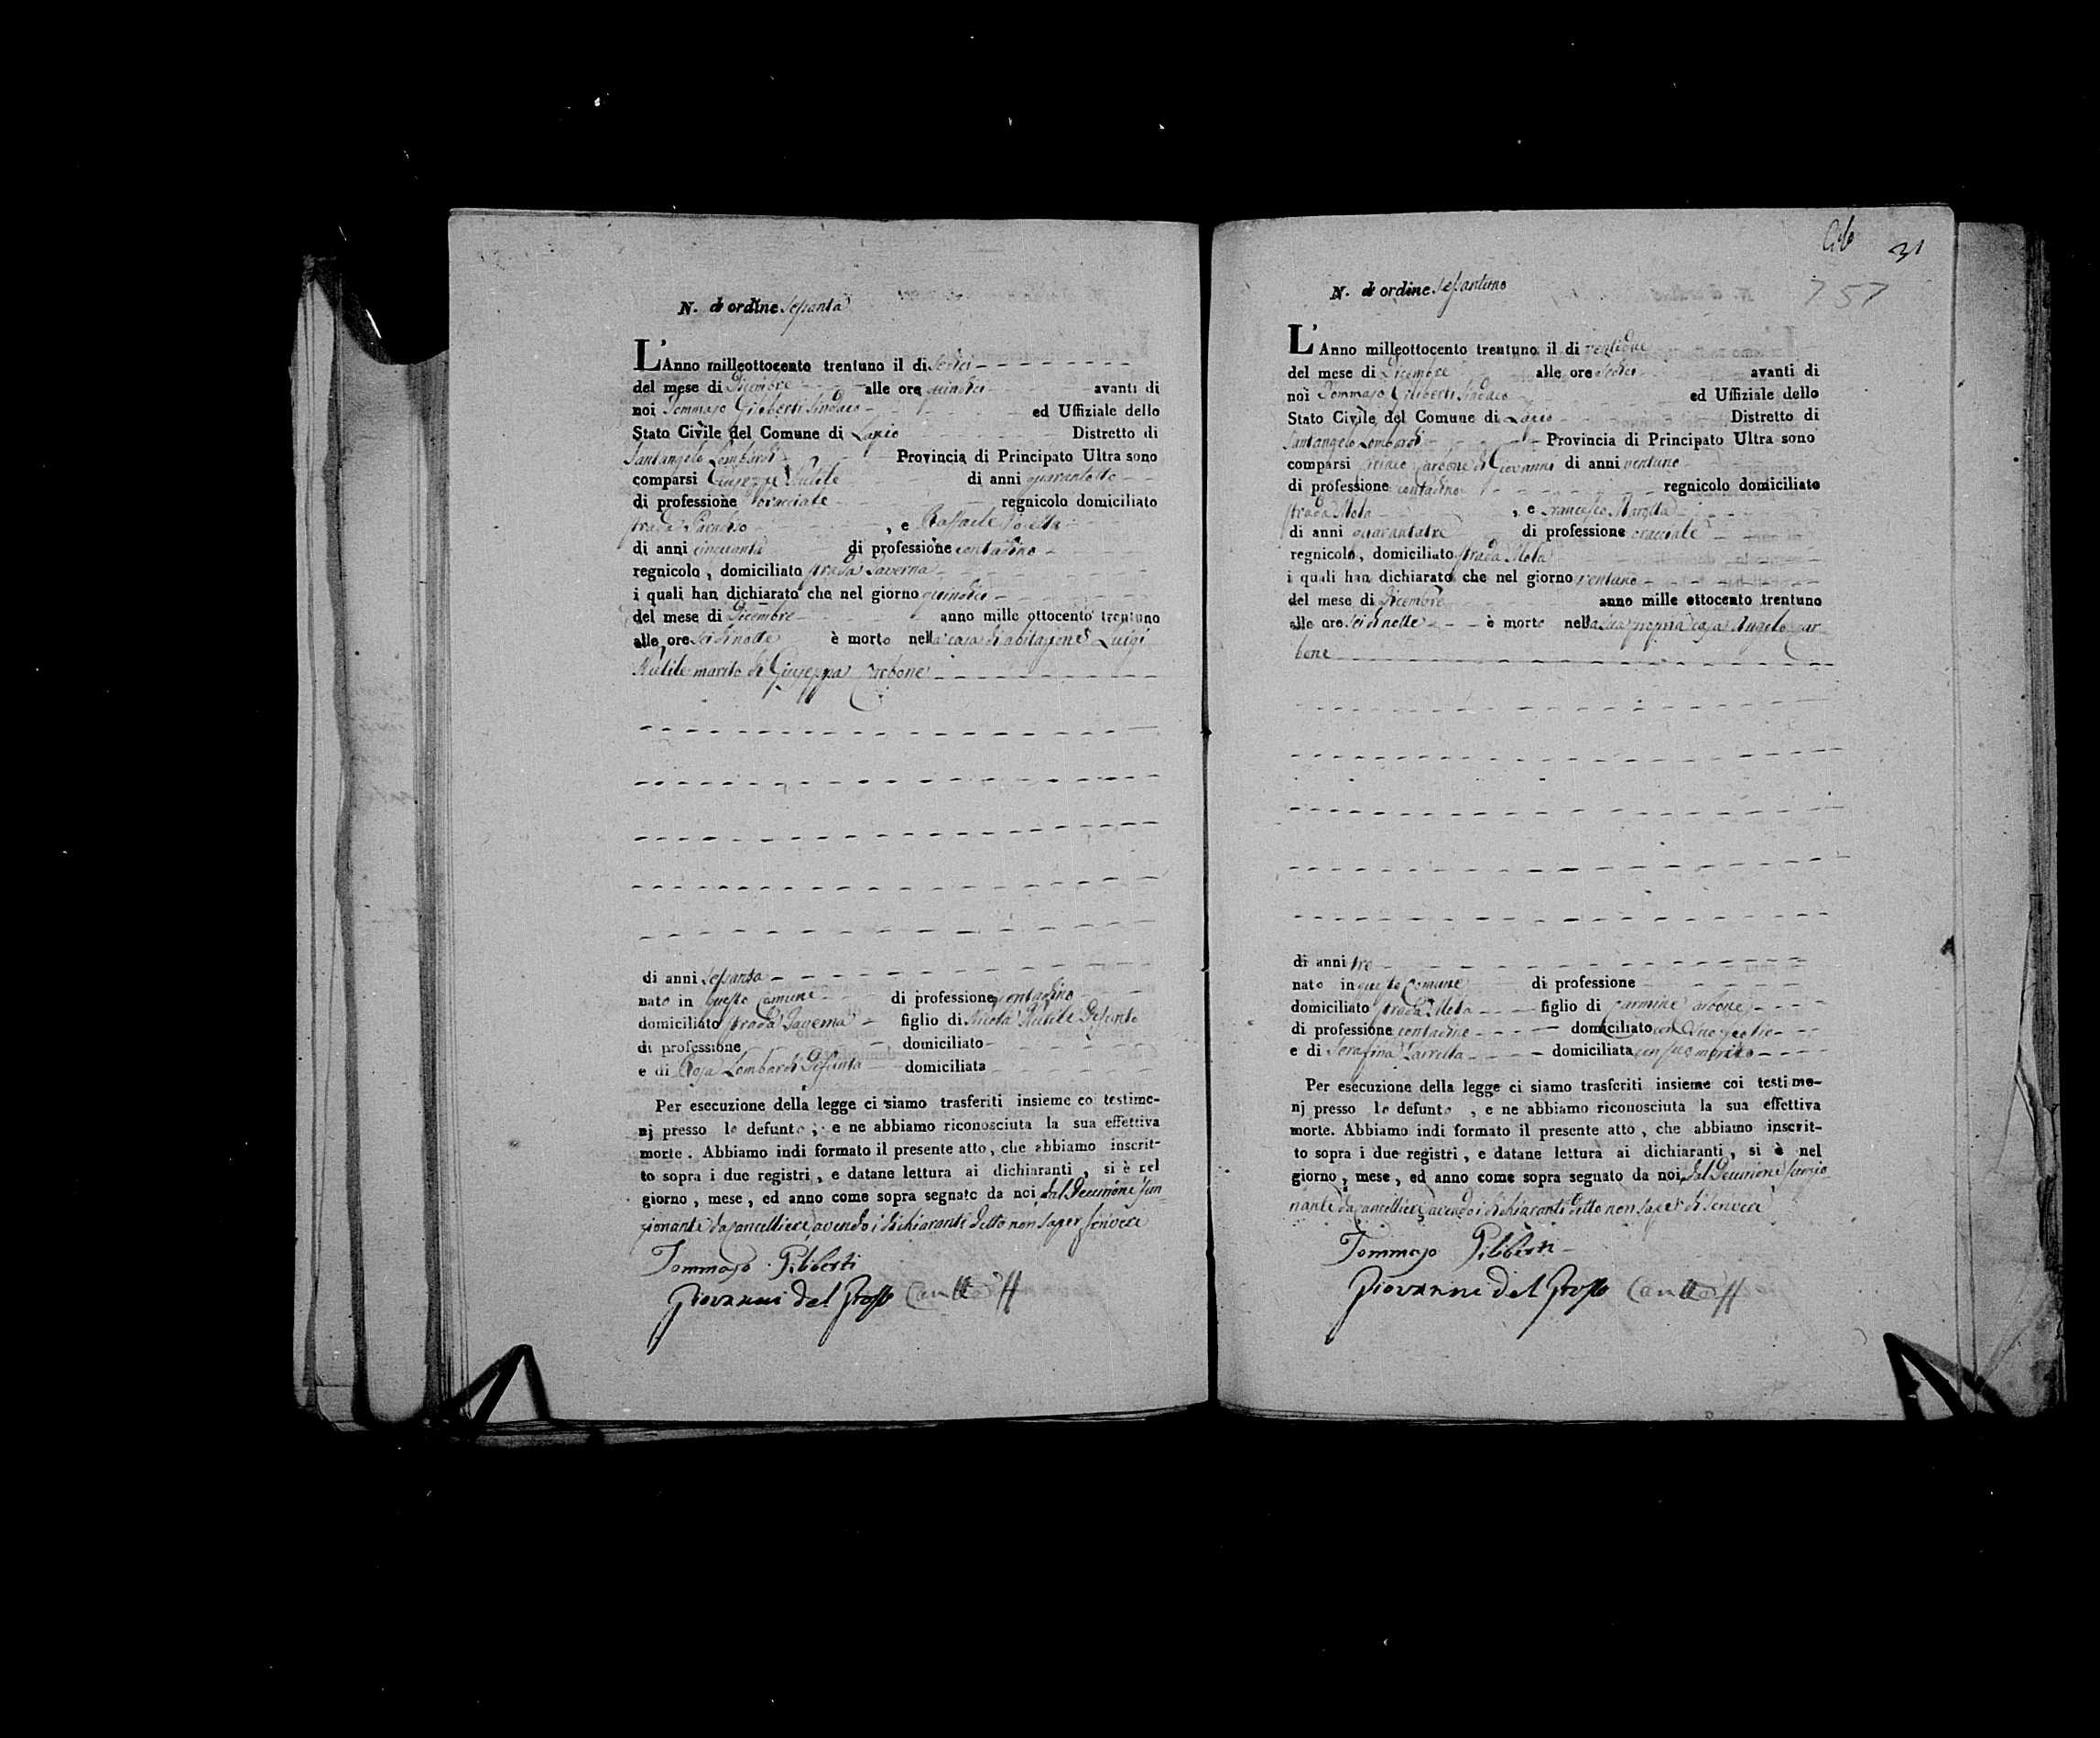 N. di ordine sessanta
L'Anno milleottocento trentuno il di sedici
del mese di Dicembre alle ore quindici avanti di
noi Tommaso Giliberti Sindaco ed Uffiziale dello
Stato Civile del Comune di Lapio Distretto di
Santangelo Lombardi Provincia di Principato Ultra sono
comparsi Giuseppe di anni quarantotto
di professione bracciale regnicolo domiciliato
strada , e Raffaele
di anni cinquanta di professione contadino
regnicolo, domiciliato strada Taverna
i quali han dichiarato che nel giorno quindici
del mese di Dicembre anno mille ottocento trentuno
alle ore sei di notte è morto nella casa di abitazione Luigi
marito di Giuseppa Carbone
di anni sessanta
nato in questo Comune di professione contadino
domiciliato strada Taverna figlio di Nicola defunto
di professione domiciliato
e di Rosa Lombardi defunta domiciliata
Per esecuzione della legge ci siamo trasferiti insieme co testimo-
nj presso lo defunto , e ne abbiamo riconosciuta la sua effettiva
morte. Abbiamo indi formato il presente atto, che abbiamo inscrit-
to sopra i due registri, e datane lettura ai dichiaranti, si è nel
giorno, mese, ed anno come sopra segnato da noi, dal Decurione fun-
zionante da Cancelliere, avendo i dichiaranti detto non saper scrivere
Tommaso Giliberti
Giovanni del Grosso
31
757
N. di ordine sessantuno
L'Anno milleottocento trentuno il di ventidue
del mese di Dicembre alle ore sedici avanti di
noi Tommaso Giliberti Sindaco ed Uffiziale dello
Stato Civile del Comune di Lapio Distretto di
Santangelo Lombardi Provincia di Principato Ultra sono
comparsi Carbone di Giovanni di anni ventuno
di professione contadino regnicolo domiciliato
strada Mola , e Francesco
di anni quarantatre di professione bracciale
regnicolo, domiciliato strada Mola
i quali han dichiarato che nel giorno ventuno
del mese di Dicembre anno mille ottocento trentuno
alle ore sei di notte è morto nella sua propria casa Angelo Car-
bone
di anni tre
nato in questo Comune di professione
domiciliato strada Mola figlio di Carmine Carbone
di professione contadino domiciliato
e di Serafina domiciliata con suo marito
Per esecuzione della legge ci siamo trasferiti insieme coi testimo-
nj presso lo defunto , e ne abbiamo riconosciuta la sua effettiva
morte. Abbiamo indi formato il presente atto, che abbiamo inscrit-
to sopra i due registri, e datane lettura ai dichiaranti, si è nel
giorno, mese, ed anno come sopra segnato da noi, dal Decurione funzio-
nante da Cancelliere, avendo i dichiaranti detto non saper di scrivere
Tommaso Giliberti
Giovanni del Grosso